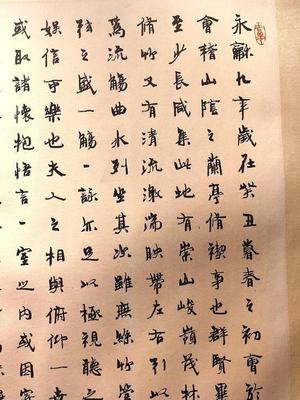 永龢九年歲在癸丑暮春之初會於
會稽山陰之蘭亭脩禊事也群賢畢
至少長咸集此地有崇山峻嶺茂林
脩竹又有清流激湍映帶左右引以
為流觴曲水列坐其次雖無絲竹管
弦之盛一觴一詠亦足以極視聽之
娛信可樂也夫人之相與俯仰一世
或取諸懷抱悟言一室之內或因寄